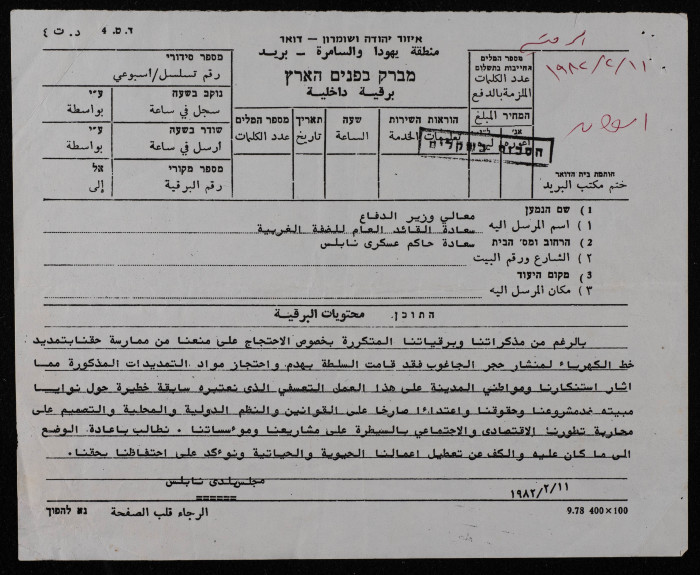 ד.ס. 4    د.ت ٤
איזור יהודה ושומרון – דואר
منطقة يهودا والسامرة – بريد
מברק בפנים הארץ
برقية داخلية
١٩٨٢/٢/١١
מספר הפלים
החייבות בתשלום
عدد الكلمات
الملزمة بالدفع
המחיר المبلغ
מספר סידורי
رقم تسلسل/اسبوعي
נוקב בשעה    ע״י
سجل في ساعة    بواسطة
שודר בשעה    ע״י
ارسل في ساعة    بواسطة
מספר מקורי    אל
رقم البرقية    إلى
מספר הפלים    תאריך    שעה    הוראות השירות
عدد الكلمات    تاريخ    الساعة    تعليمات الخدمة
הסכום בשקלים
חותמת בית הדואר
ختم مكتب البريد
1 ) שם הנמען    معالي وزير الدفاع
١ ) اسم المرسل اليه    سعادة القائد العام للضفة الغربية
2 ) הרחוב ומס׳ הבית    سعادة حاكم عسكرى نابلس
٢ ) الشارع ورقم البيت
3 ) מקום היעוד
٣ ) مكان المرسل اليه
התוכן.    محتويات البرقية
بالرغم من مذكراتنا وبرقياتنا المتكررة بخصوص الاحتجاج على منعنا من ممارسة حقنا بتمديد
خط الكهرباء لمنشار حجر الجاغوب فقد قامت السلطة بهدم واحتجاز مواد التمديدات المذكورة مما
اثار استنكارنا ومواطني المدينة على هذا العمل التعسفي الذى نعتبره سابقة خطيرة حول نوايا
مبيته ضد مشروعنا وحقوقنا واعتداءا صارخا على القوانين والنظم الدولية والمحلية والتصميم على
محاربة تطورنا الاقتصادى والاجتماعي بالسيطرة على مشاريعنا ومؤسساتنا . نطالب باعادة الوضع
الى ما كان عليه والكف عن تعطيل اعمالنا الحيوية والحياتية ونؤكد على احتفاظنا بحقنا.
مجلس بلدى نابلس
١٩٨٢/٢/١١
======
נא להפוך    الرجاء قلب الصفحة    9.78 400×100